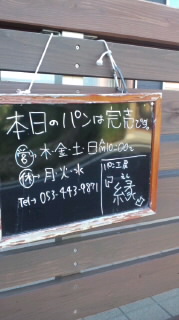 本日のパンは完売です。
営 木・金・土・日 AM10:00~
休 月・火・水
Tel→ 053-443-9871
パン工房
縁